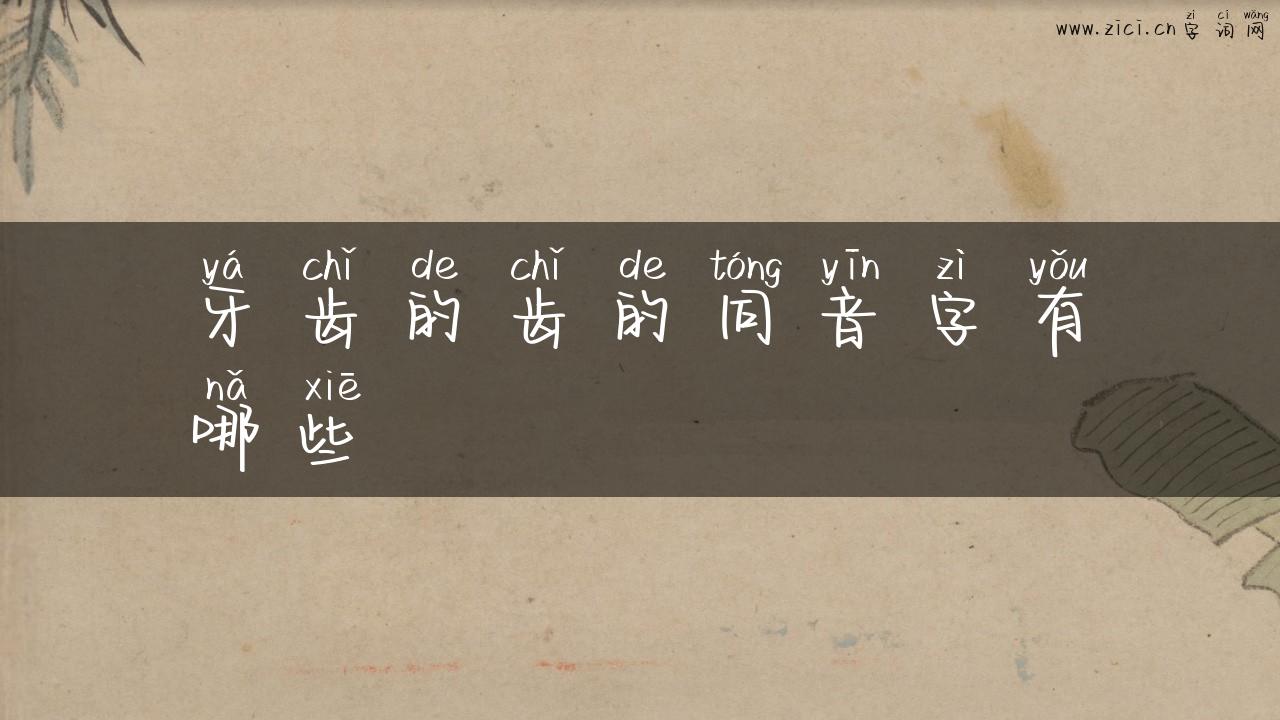 zì cí wǎng
www.zici.cn 字词网
yá chǐ de chǐ de tóng yīn zì yǒu
牙齿的齿的同音字有
nǎ xiē
哪些